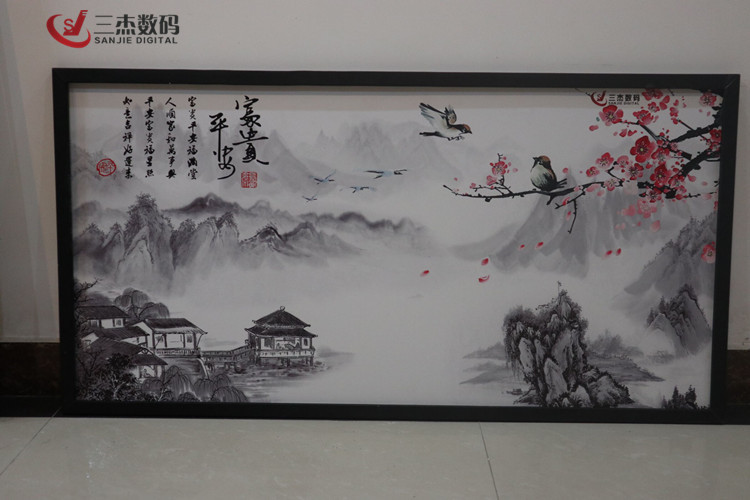 三杰数码
SANJIE DIGITAL
三杰数码
SANJIE DIGITAL
富貴
平安
富貴平安福满堂
人順家和萬事興
平安富貴福星照
如意吉祥好運来